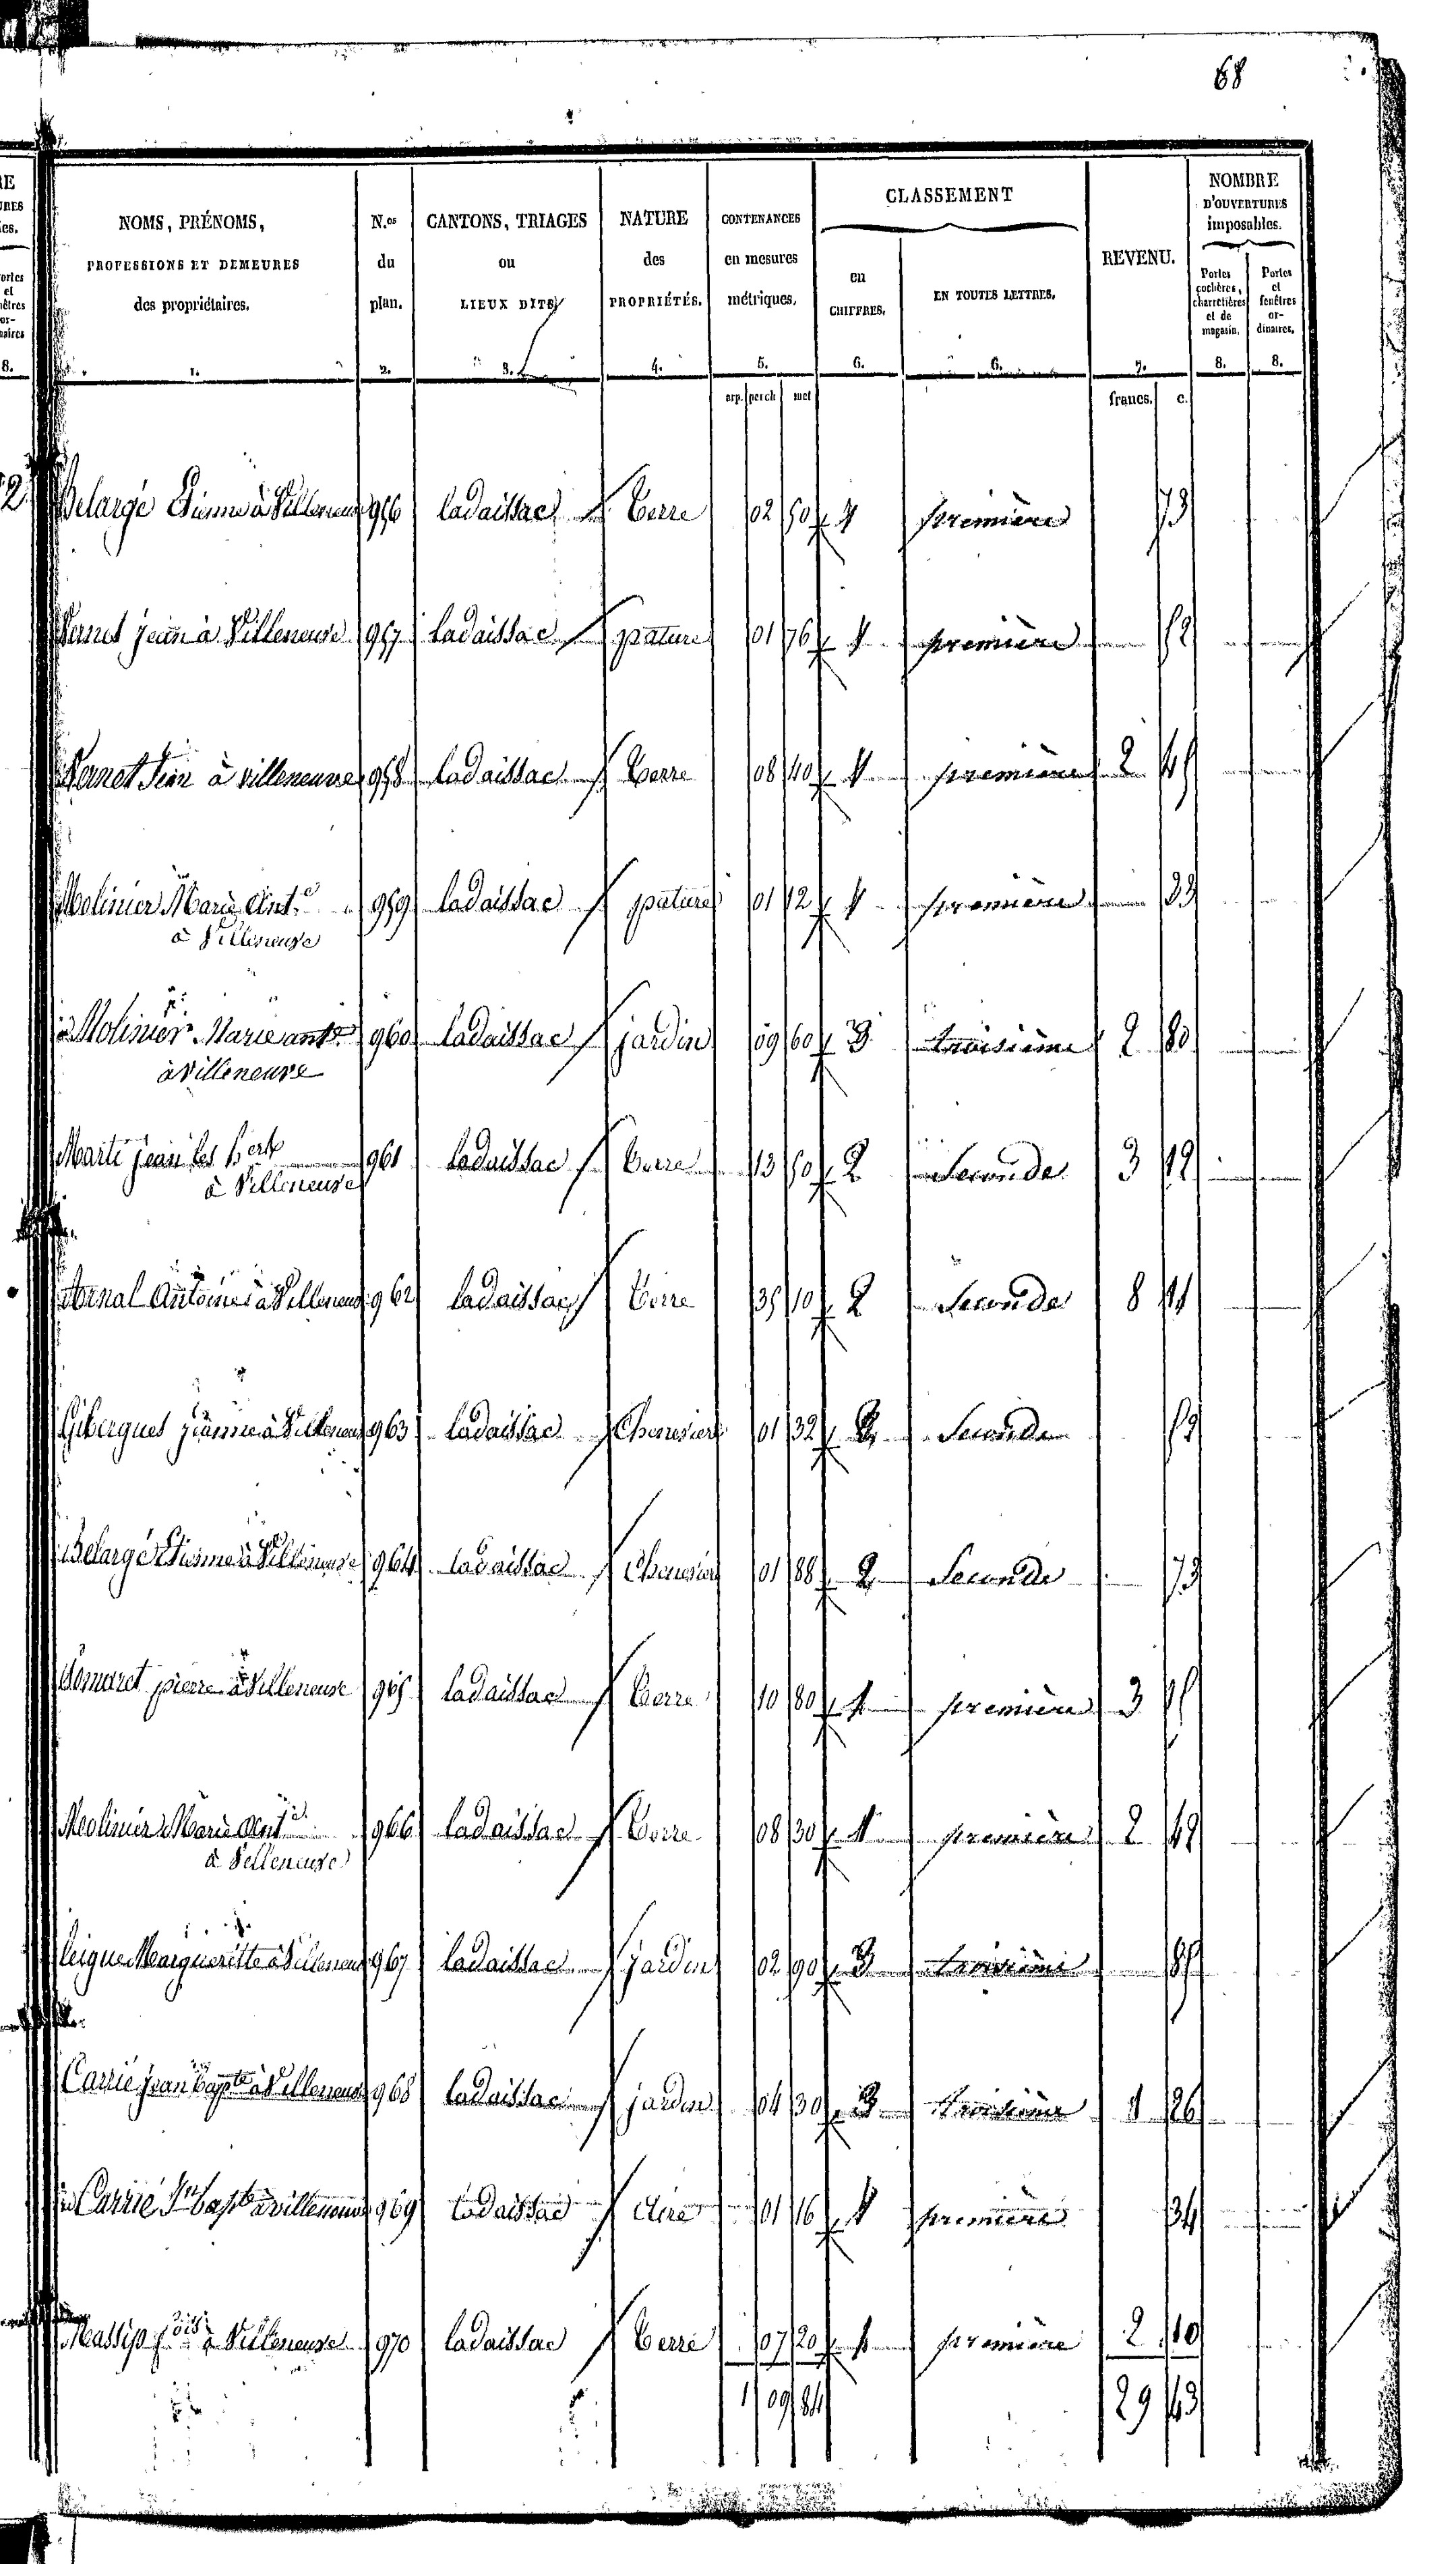 68
NOMS, PRÉNOMS, PROFESSIONS ET DEMEURES des propriétaires. 1.
N.os du plan. 2.
CANTONS, TRIAGES ou LIEUX DITS 3.
NATURE des PROPRIÉTÉS. 4.
CONTENANCES en mesures métriques. 5.
CLASSEMENT
en CHIFFRES. 6.
EN TOUTES LETTRES. 6.
REVENU. 7.
NOMBRE D'OUVERTURES imposables.
Portes cochères, charretières et de magasin. 8.
Portes et fenêtres ordinaires. 8.
arp. perch met francs. c.
Delargé Étienne à Villeneuve 956 ladaissac Terre 02 50 1 première 73
Vernet jean à Villeneuve 957 ladaissac pature 01 76 1 première 52
Vernet Jean à villeneuve 958 ladaissac Terre 08 40 1 première 2 45
Molinier Marie Ant.e 959 ladaissac pature 01 12 1 première 33
à Villeneuve
Molinier Marie ant.e 960 ladaissac jardin 09 60 3 troisième 2 80
à Villeneuve
Marti jean les 961 ladaissac Terre 13 50 2 Seconde 3 12
à Villeneuve
Arnal Antoine à Villeneuve 962 ladaissac Terre 35 10 2 Seconde 8 11
Gibergues à Villeneuve 963 ladaissac Chenevière 01 32 2 Seconde 52
Delargé Étienne à Villeneuve 964 ladaissac Chenevière 01 88 2 Seconde 73
pierre à Villeneuve 965 ladaissac Terre 10 80 1 première 3 15
Molinier Marie Ant.e 966 ladaissac Terre 08 30 1 première 2 42
à Villeneuve
Margueritte à Villeneuve 967 ladaissac jardin 02 90 3 troisième 85
Carrié jean bapte à Villeneuve 968 ladaissac jardin 04 30 3 troisième 1 26
Carrié Jn bapte à villeneuve 969 ladaissac aire 01 16 1 première 34
Massip fois à Villeneuve 970 ladaissac Terre 07 20 1 première 2 10
1 09 84 29 43